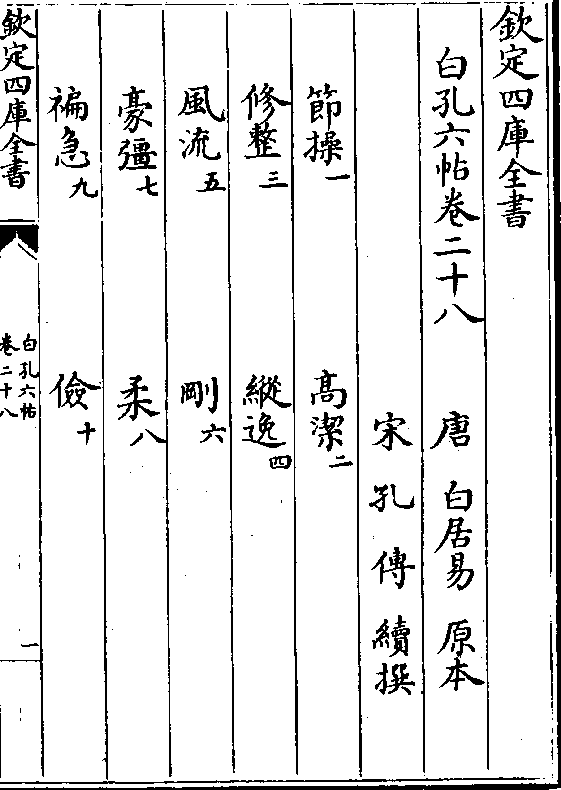 欽定四庫全書
白孔六帖卷二十八　唐　白居易　原本
宋　孔　傳　續撰
節操一　高潔二
修整三　縱逸四
風流五　剛六
豪彊七　柔八
褊急九　儉十
欽定四庫全書
白孔六帖
卷二十八
一